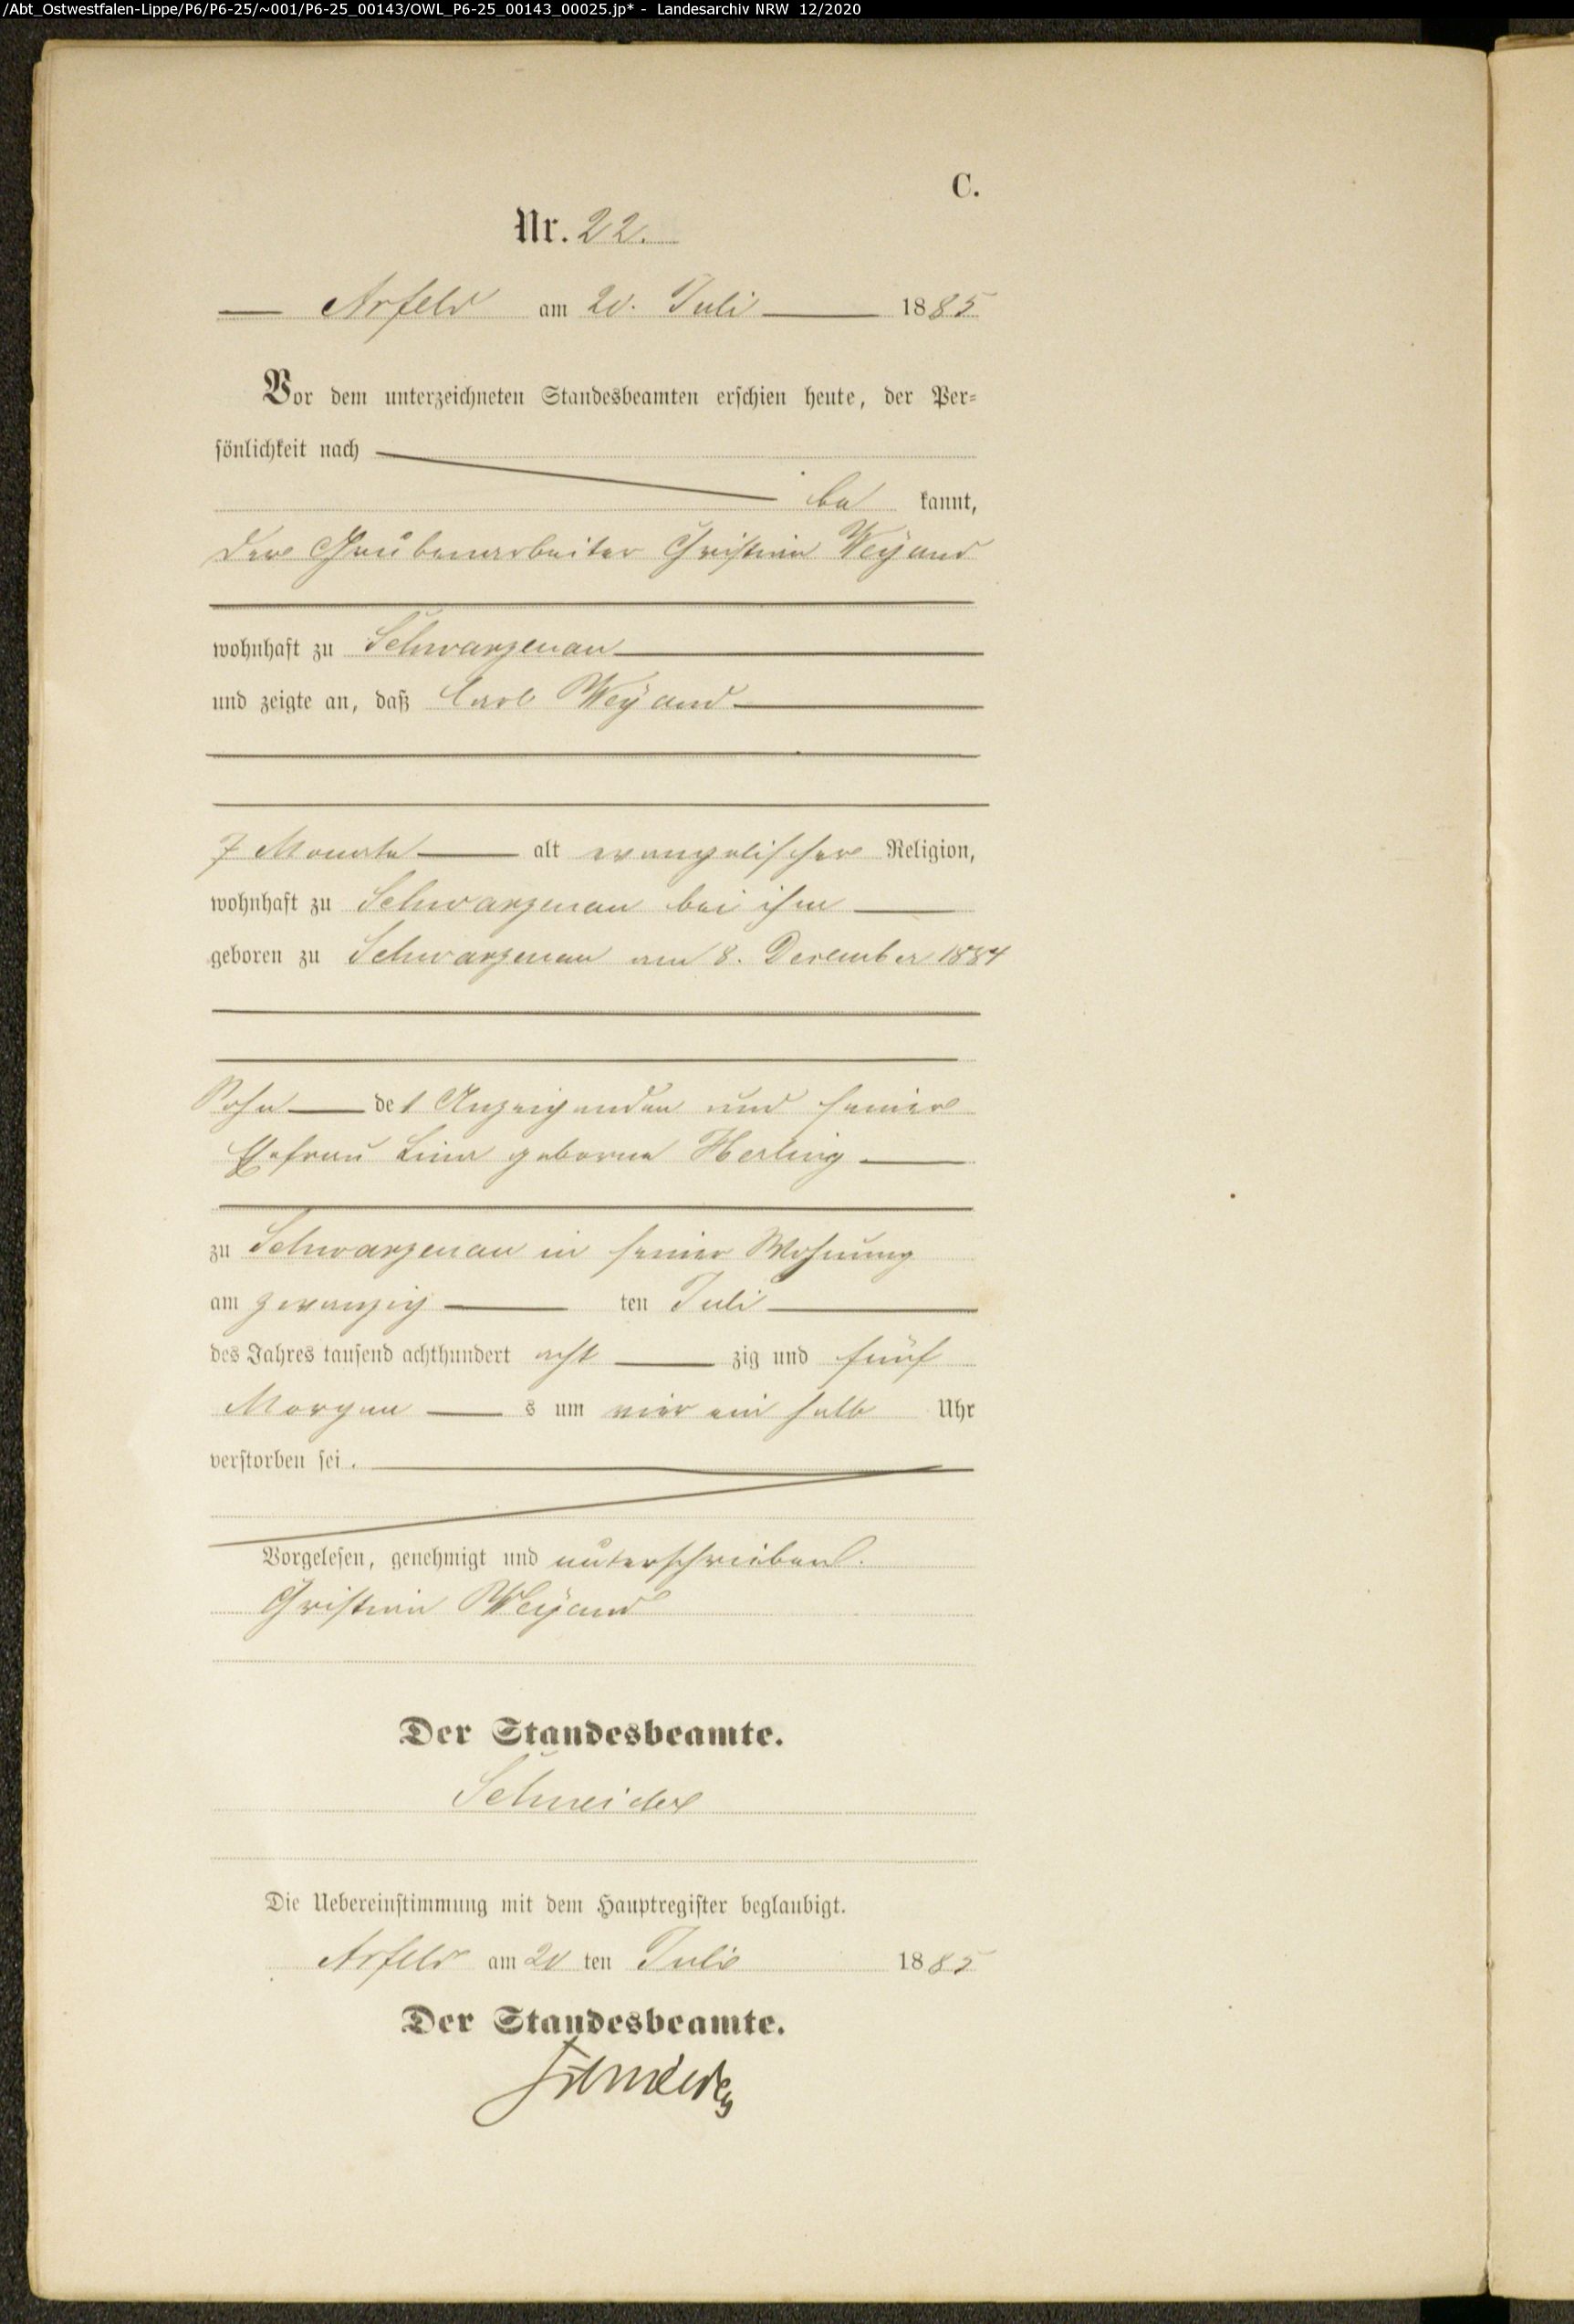 /Abt_Ostwestfalen-Lippe/P6/P6-25/~001/P6-25_00143/OWL_P6-25_00143_00025.jp* - Landesarchiv NRW 12/2020
C.
Nr. 22.
Arfeld am 20. Juli 1885
Vor dem unterzeichneten Standesbeamten erschien heute, der Per-
sönlichkeit nach
be kannt,
der Grubenarbeiter Christian Weyand
wohnhaft zu Schwarzenau
und zeigte an, daß Carl Weyand
7 Monate alt evangelischer Religion,
wohnhaft zu Schwarzenau bei ihm
geboren zu Schwarzenau am 8. December 1884
Sohn des Anzeigenden und seiner
Ehefrau Lina geborne Herling
zu Schwarzenau in seiner Wohnung
am zwanzig ten Juli
des Jahres tausend achthundert acht zig und fünf
Morgen s um vier ein halb Uhr
verstorben sei.
Vorgelesen, genehmigt und unterschrieben.
Christian Weyand
Der Standesbeamte.
Schneider
Die Uebereinstimmung mit dem Hauptregister beglaubigt.
Arfeld am 20 ten Juli 1885
Der Standesbeamte.
Schneider